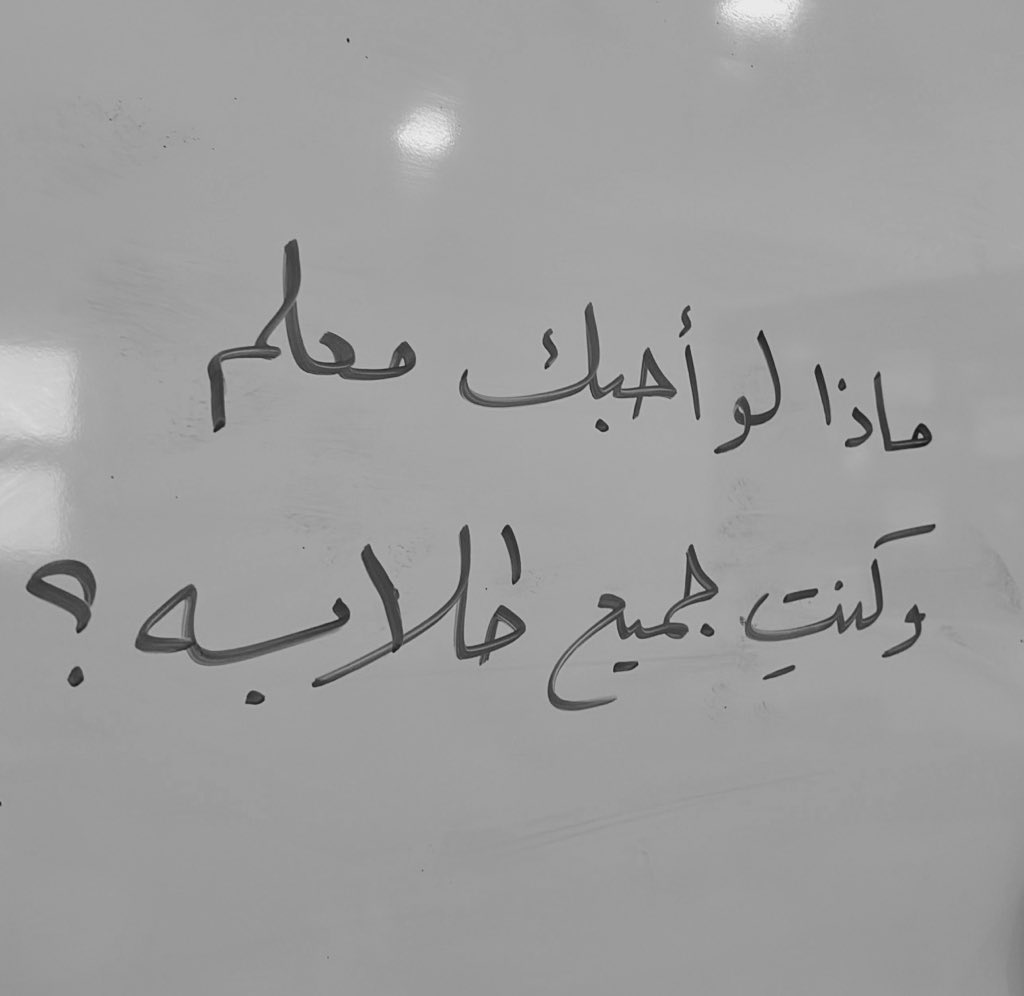 ماذا لو أحبك معلم
وكنتِ جميع طلابه ؟